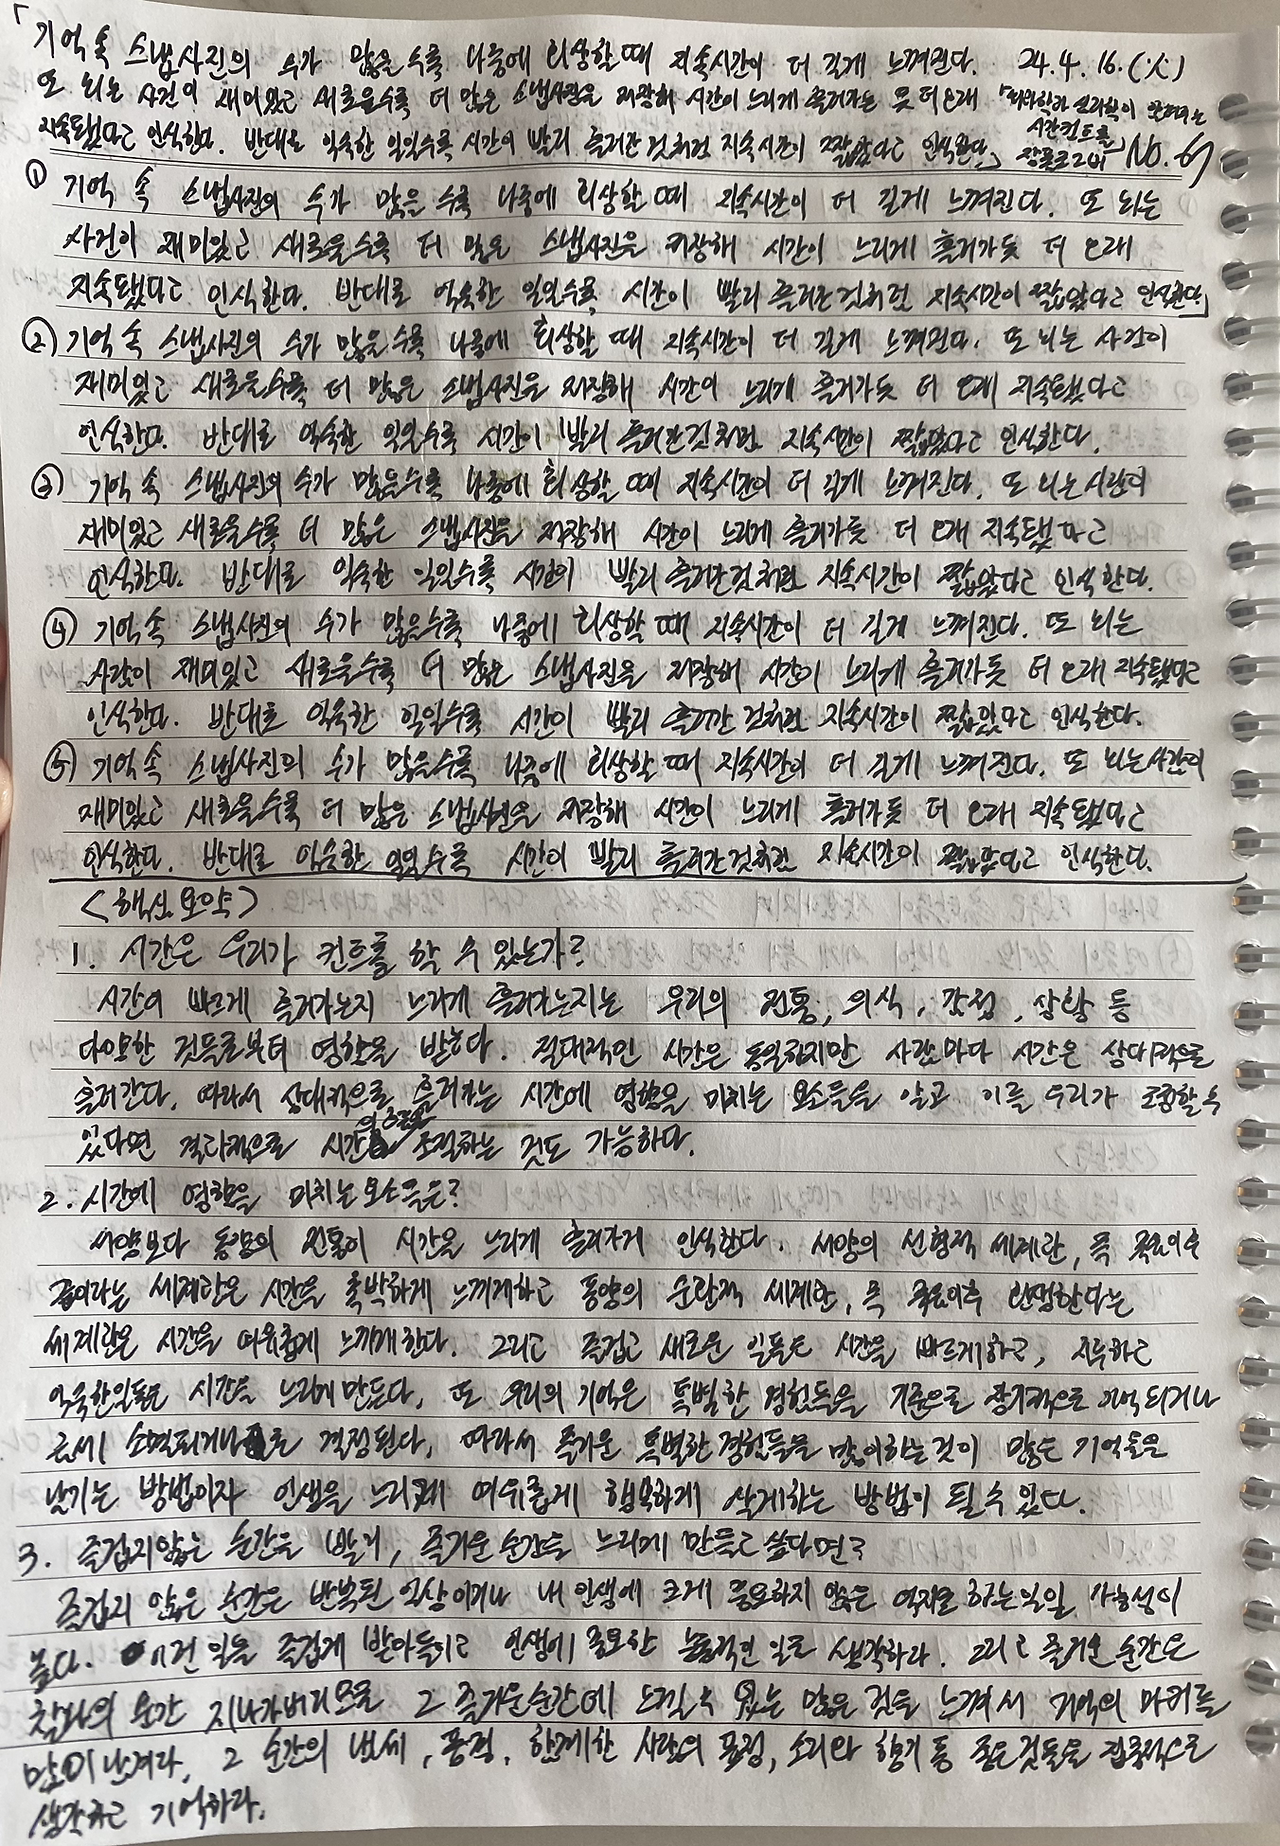 「기억 속 스냅사진의 수가 많을수록 나중에 회상할 때 지속시간이 더 길게 느껴진다. 24.4.16.(火)
또 뇌는 사건이 재미있고 새로울수록 더 많은 스냅사진을 저장해 시간이 느리게 흘러가는 듯 더 오래 시간컨트롤」
지속됐다고 인식한다. 반대로 익숙한 일일수록 시간이 빨리 흘러간 것처럼 지속시간이 짧았다고 인식한다」 장폴조그비 No. 67
① 기억 속 스냅사진의 수가 많을수록 나중에 회상할 때 지속시간이 더 길게 느껴진다. 또 뇌는
사건이 재미있고 새로울수록 더 많은 스냅사진을 저장해 시간이 느리게 흘러가듯 더 오래
지속됐다고 인식한다. 반대로 익숙한 일일수록 시간이 빨리 흘러간것처럼 지속시간이 짧았다고 인식한다」
② 기억 속 스냅사진의 수가 많을수록 나중에 회상할 때 지속시간이 더 길게 느껴진다. 또 뇌는 사건이
재미있고 새로울수록 더 많은 스냅사진을 저장해 시간이 느리게 흘러가듯 더 오래 지속됐다고
인식한다. 반대로 익숙한 일일수록 시간이 빨리 흘러간것처럼 지속시간이 짧았다고 인식한다.
③ 기억 속 스냅사진의 수가 많을수록 나중에 회상할 때 지속시간이 더 길게 느껴진다. 또 뇌는 사건이
재미있고 새로울수록 더 많은 스냅사진을 저장해 시간이 느리게 흘러가듯 더 오래 지속됐다고
인식한다. 반대로 익숙한 일일수록 시간이 빨리 흘러간것처럼 지속시간이 짧았다고 인식한다.
④ 기억 속 스냅사진의 수가 많을수록 나중에 회상할 때 지속시간이 더 길게 느껴진다. 또 뇌는
사건이 재미있고 새로울수록 더 많은 스냅사진을 저장해 시간이 느리게 흘러가듯 더 오래 지속됐다고
인식한다. 반대로 익숙한 일일수록 시간이 빨리 흘러간 것처럼 지속시간이 짧았다고 인식한다.
⑤ 기억 속 스냅사진의 수가 많을수록 나중에 회상할 때 지속시간이 더 길게 느껴진다. 또 뇌는 사건이
재미있고 새로울수록 더 많은 스냅사진을 저장해 시간이 느리게 흘러가듯 더 오래 지속됐다고
인식한다. 반대로 익숙한 일일수록 시간이 빨리 흘러간것처럼 지속시간이 짧았다고 인식한다.
<핵심요약>
1. 시간은 우리가 컨트롤 할 수 있는가?
시간이 빠르게 흘러가는지 느리게 흘러가는지는 우리의 전통, 의식, 감정, 상황 등
다양한 것들로부터 영향을 받는다. 절대적인 시간은 동일하지만 사람마다 시간은 상대적으로
흘러간다. 따라서 상대적으로 흘러가는 시간에 영향을 미치는 요소들을 알고 이를 우리가 조절할수
있다면 결과적으로 시간의 조절하는 것도 가능하다.
2. 시간에 영향을 미치는 요소들은?
서양보다 동양의 전통이 시간을 느리게 흘러가게 인식한다. 서양의 선형적 세계관, 즉 죽음이후
끝이라는 세계관은 시간을 촉박하게 느끼게하고 동양의 순환적 세계관, 즉 죽음이후 환생한다는
세계관은 시간을 여유롭게 느끼게 한다. 그리고 즐겁고 새로운 일들은 시간을 빠르게하고, 지루하고
익숙한일들은 시간을 느리게 만든다. 또 우리의 기억은 특별한 경험들을 기준으로 장기적으로 기억되거나
금세 소멸되거나를 결정된다. 따라서 즐거운 특별한 경험들을 많이하는 것이 많은 기억들을
남기는 방법이자 인생을 느리게 여유롭게 행복하게 살게하는 방법이 될 수 있다.
3. 즐겁지않은 순간을 빨리, 즐거운 순간을 느리게 만들고 싶다면?
즐겁지 않은 순간은 반복된 일상이거나 내 인생에 크게 중요하지 않은 억지로 하는일일 가능성이
높다. 이런 일을 즐겁게 받아들이고 인생에 중요한 능동적인 일로 생각하라. 그리고 즐거운 순간은
찰나의 순간 지나가버리므로 그 즐거운순간에 느낄 수 있는 많은 것을 느껴서 기억의 마커를
많이 남겨라. 그 순간의 냄새, 풍경, 함께한 사람의 표정, 소리와 향기 등 좋은것들을 집중적으로
생각하고 기억하라.